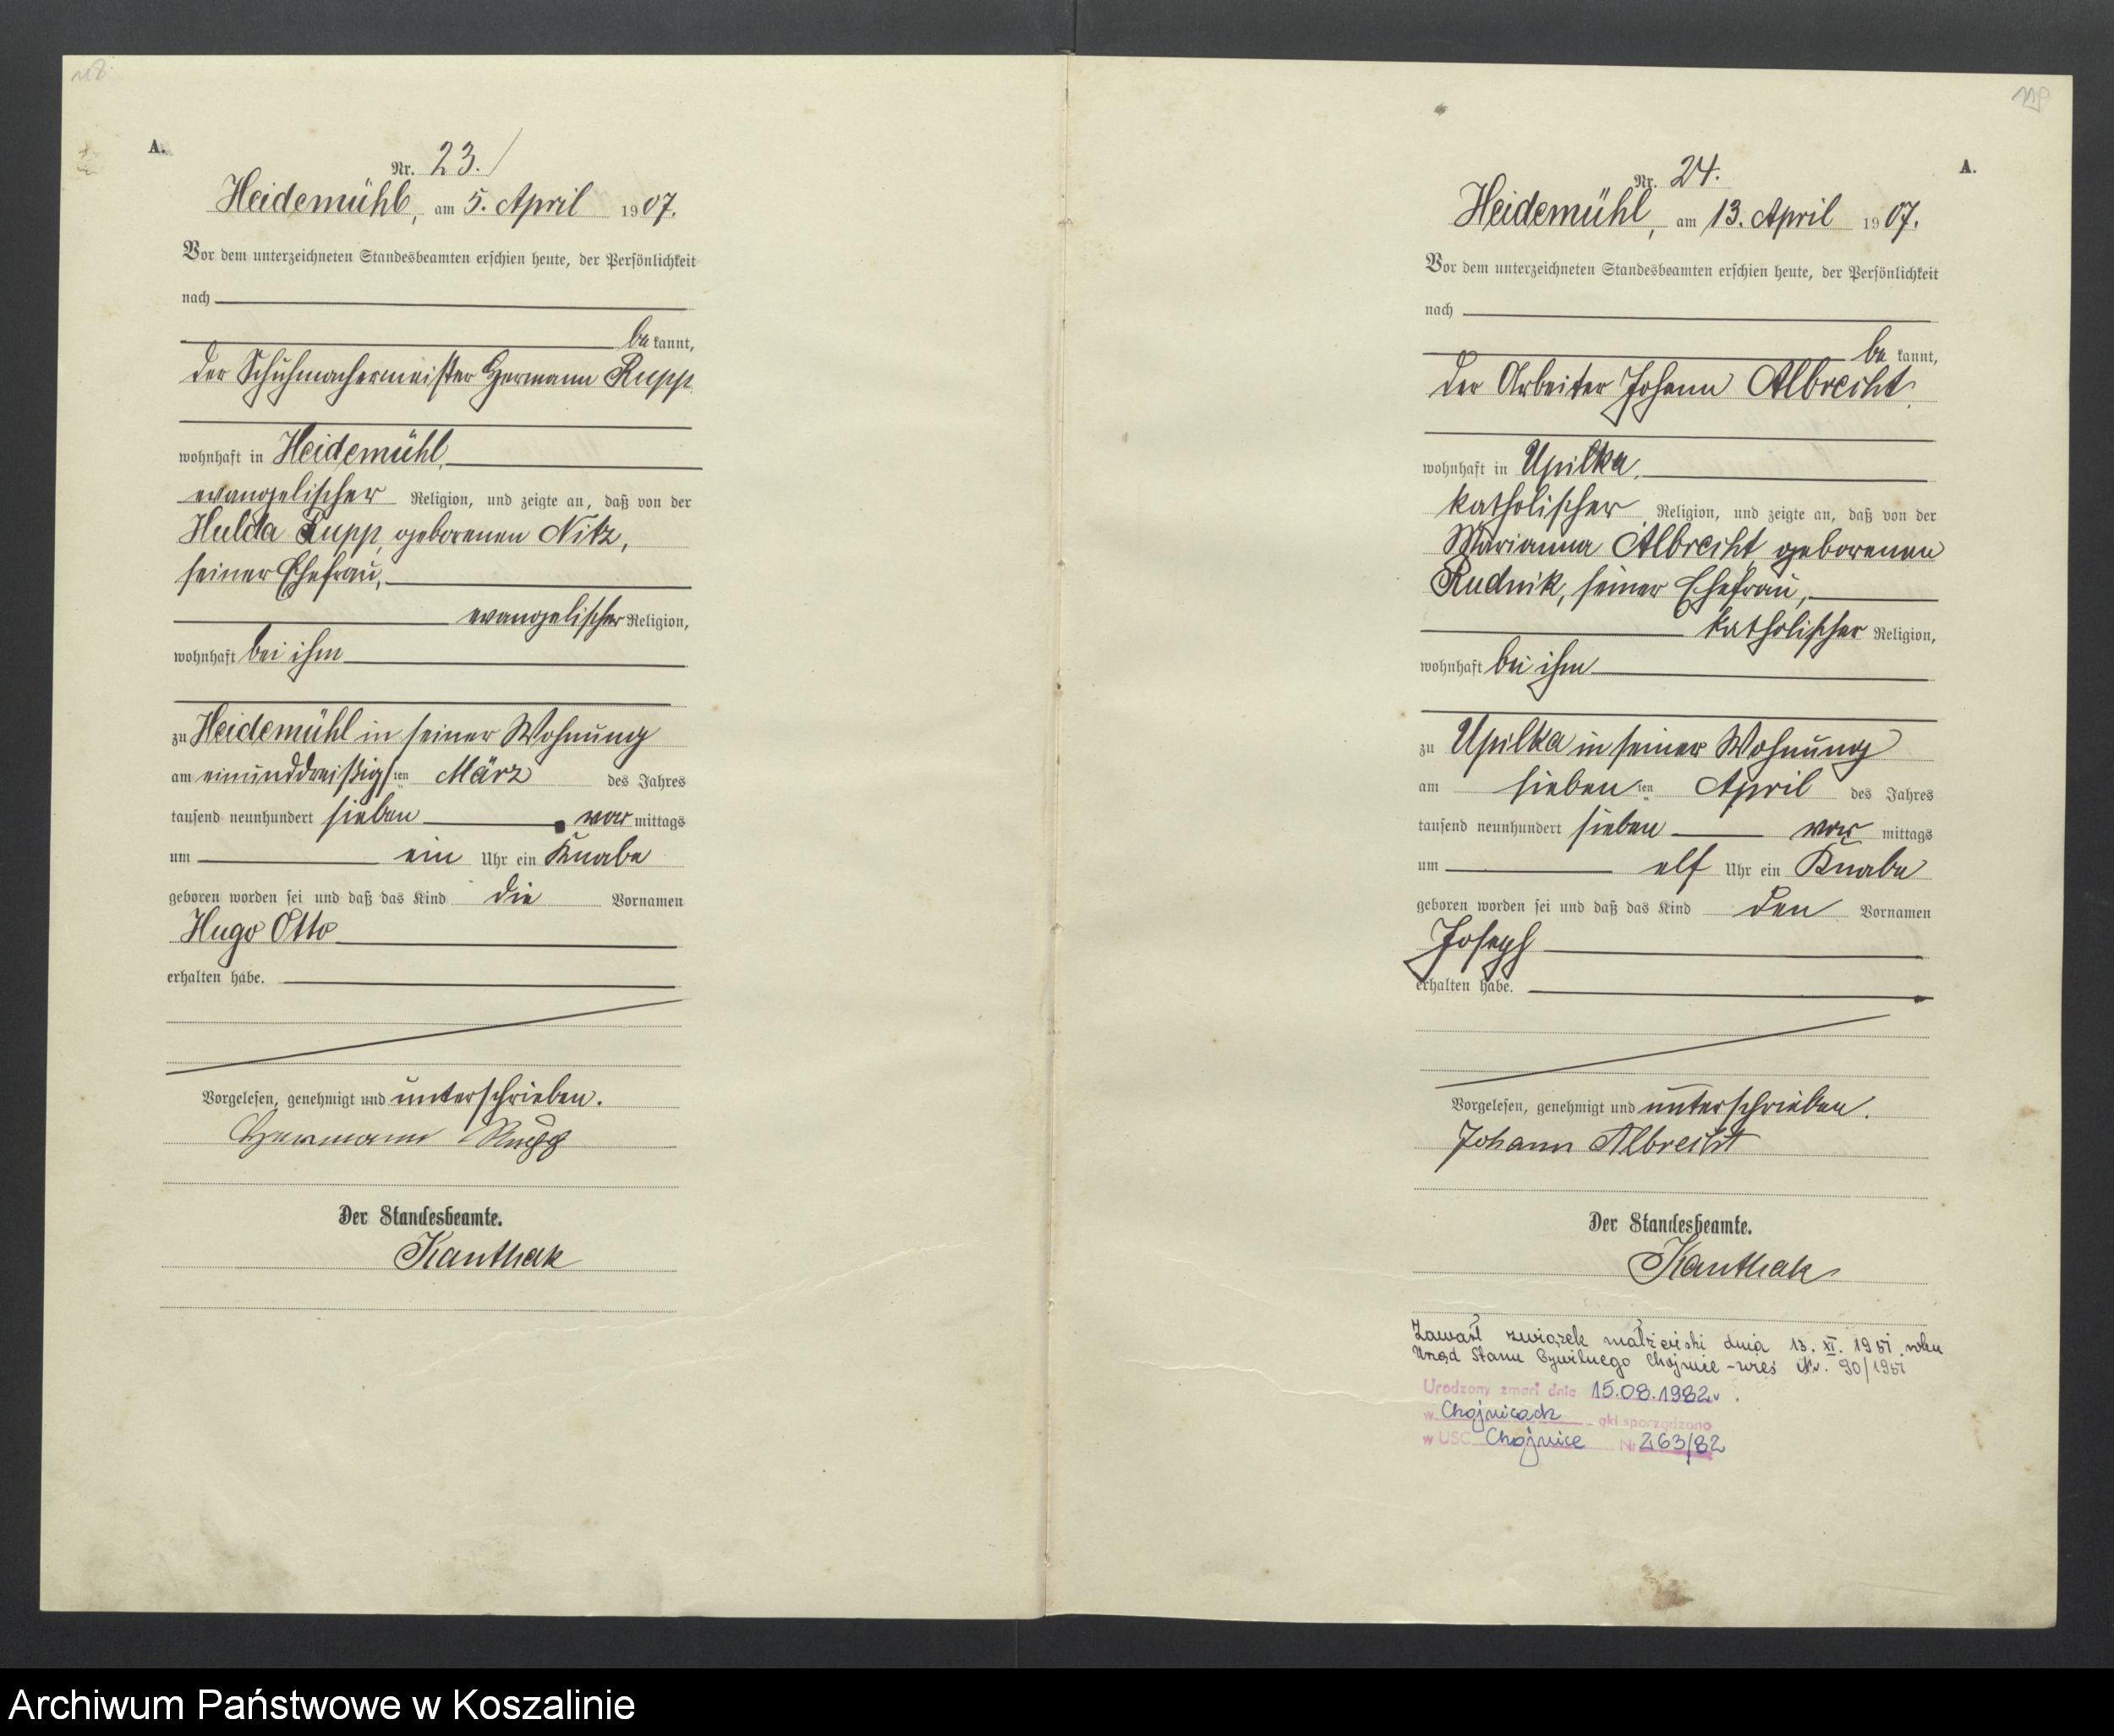 118.
A.
Nr. 23.
Heidemühl, am 5. April 1907.
Vor dem unterzeichneten Standesbeamten erschien heute, der Persönlichkeit
nach
bekannt,
der Schuhmachermeister Hermann Rupp
wohnhaft in Heidemühl,
evangelischer Religion, und zeigte an, daß von der
Hulda Rupp, geborenen Nitz,
seiner Ehefrau,
evangelischer Religion,
wohnhaft bei ihm
zu Heidemühl in seiner Wohnung
am einunddreißigsten März des Jahres
tausend neunhundert sieben vormittags
um ein Uhr ein Knabe
geboren worden sei und daß das Kind die Vornamen
Hugo Otto
erhalten habe.
Vorgelesen, genehmigt und unterschrieben.
Hermann Rupp
Der Standesbeamte.
Kanthak
119
A.
Nr. 24.
Heidemühl, am 13. April 1907.
Vor dem unterzeichneten Standesbeamten erschien heute, der Persönlichkeit
nach
bekannt,
der Arbeiter Johann Albrecht
wohnhaft in Upilka,
katholischer Religion, und zeigte an, daß von der
Marianna Albrecht, geborenen
Rudnik, seiner Ehefrau,
katholischer Religion,
wohnhaft bei ihm
zu Upilka in seiner Wohnung
am siebenten April des Jahres
tausend neunhundert sieben vormittags
um elf Uhr ein Knabe
geboren worden sei und daß das Kind den Vornamen
Joseph
erhalten habe.
Vorgelesen, genehmigt und unterschrieben.
Johann Albrecht
Der Standesbeamte.
Kanthak
Zawarł związek małżeński dnia 13. XI. 1951 roku
Urząd Stanu Cywilnego Chojnice-wieś Nr. 90/1951
Urodzony zmarł dnia 15.08.1982r.
w Chojnicach akt sporządzono
w USC Chojnice Nr 263/82
Archiwum Państwowe w Koszalinie